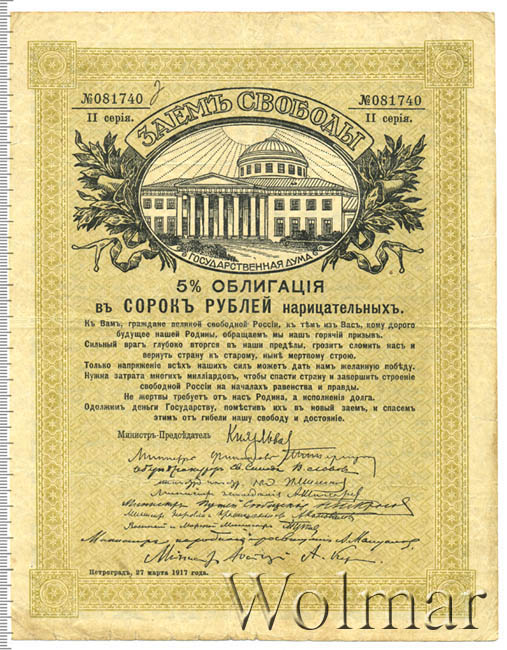 №081740 №081740
II серія. II серія.
ЗАЕМЪ СВОБОДЫ
ГОСУДАРСТВЕННАЯ ДУМА
5% ОБЛИГАЦІЯ
въ СОРОКЪ РУБЛЕЙ нарицательныхъ.
Къ Вамъ, граждане великой свободной Россіи, къ тѣмъ изъ Васъ, кому дорого
будущее нашей Родины, обращаемъ мы нашъ горячій призывъ.
Сильный врагъ глубоко вторгся въ наши предѣлы, грозитъ сломить насъ и
вернуть страну къ старому, нынѣ мертвому строю.
Только напряженіе всѣхъ нашихъ силъ можетъ дать намъ желанную побѣду.
Нужна затрата многихъ милліардовъ, чтобы спасти страну и завершить строеніе
свободной Россіи на началахъ равенства и правды.
Не жертвы требуетъ отъ насъ Родина, а исполненія долга.
Одолжимъ деньги Государству, помѣстивъ ихъ въ новый заемъ, и спасемъ
этимъ отъ гибели нашу свободу и достояніе.
Министръ-Предсѣдатель
Министръ
Петроградъ, 27 марта 1917 года.
Wolmar